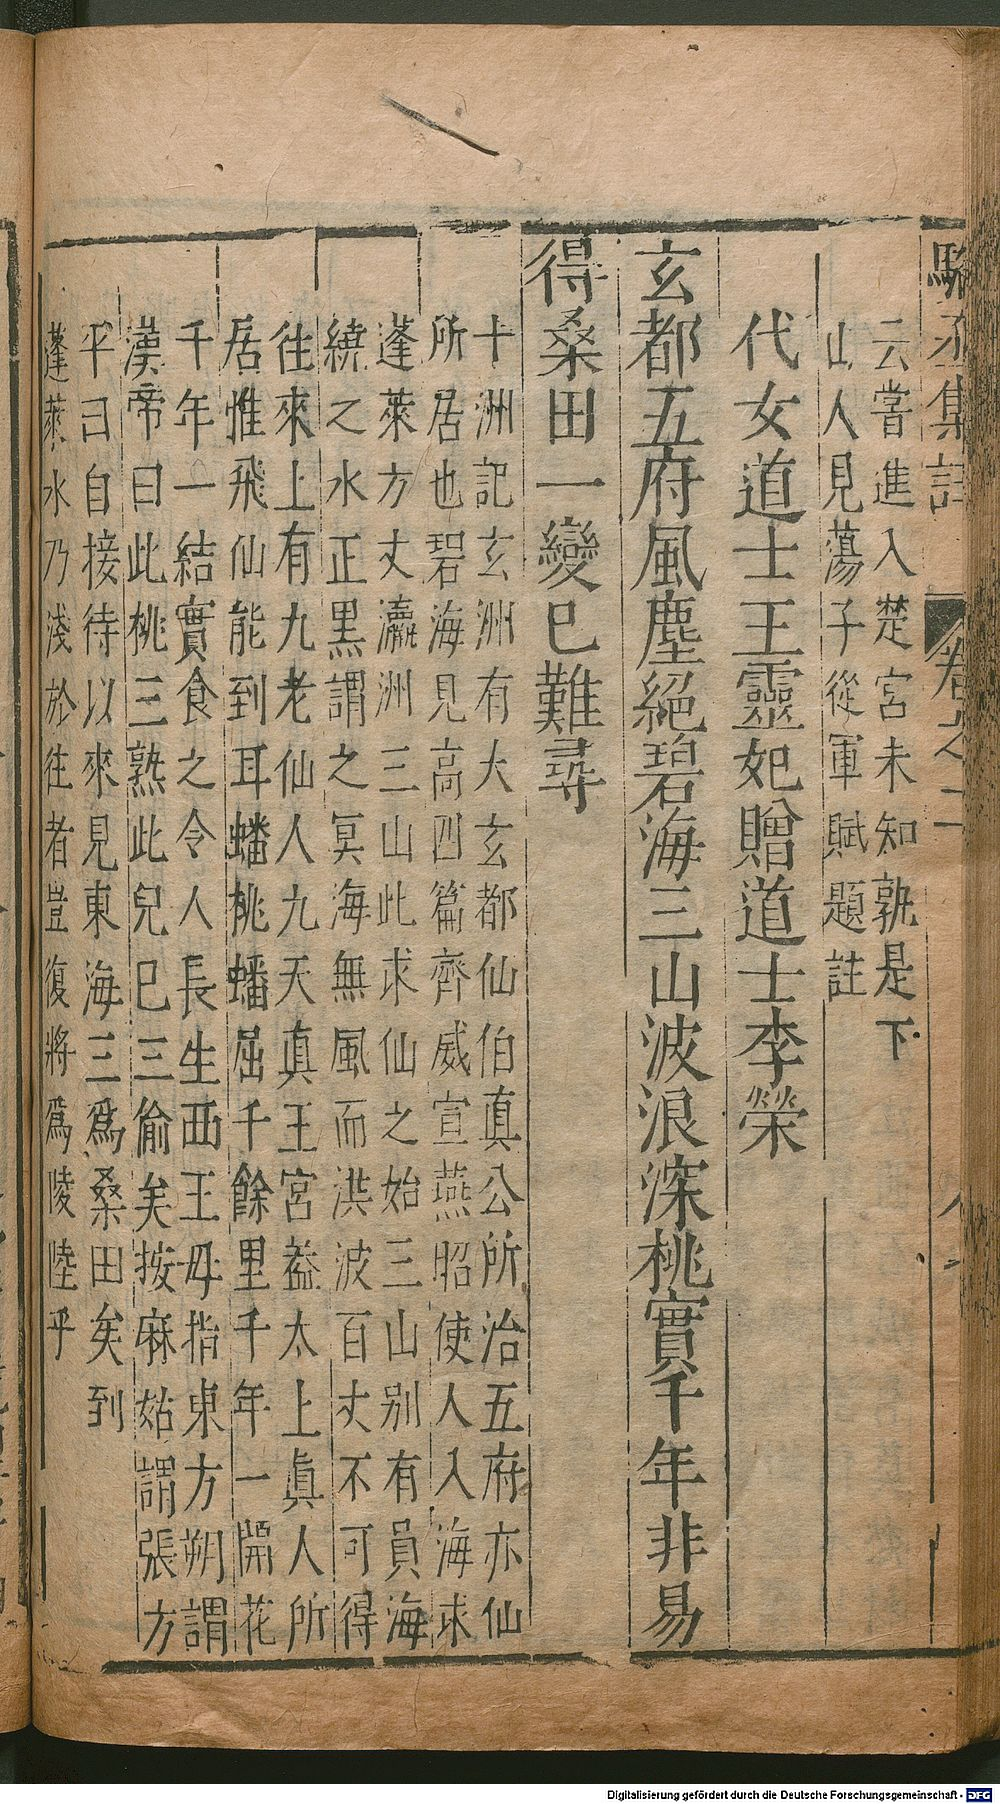 駱丞集註 卷之二
云嘗進入楚宮未知孰是下
山人見蕩子從軍賦題註
代女道士王靈妃贈道士李榮
玄都五府風塵絕碧海三山波浪深桃實千年非易
得桑田一變已難尋
十洲記玄洲有大玄都仙伯真公所治五府亦仙
所居也碧海見高四篇齊威宣燕昭使人入海求
蓬萊方丈瀛洲三山此求仙之始三山别有員海
繞之水正黒謂之冥海無風而洪波百丈不可得
往來上有九老仙人九天真王宮葢太上眞人所
居惟飛仙能到耳蟠桃蟠屈千餘里千年一開花
千年一結實食之令人長生西王母指東方朔謂
漢帝曰此桃三熟此兒已三偷矣按麻姑謂張方
平曰自接待以來見東海三爲桑田矣到
蓬萊水乃淺於往者豈復將爲陵陸乎
Digitalisierung gefördert durch die Deutsche Forschungsgemeinschaft - DFG